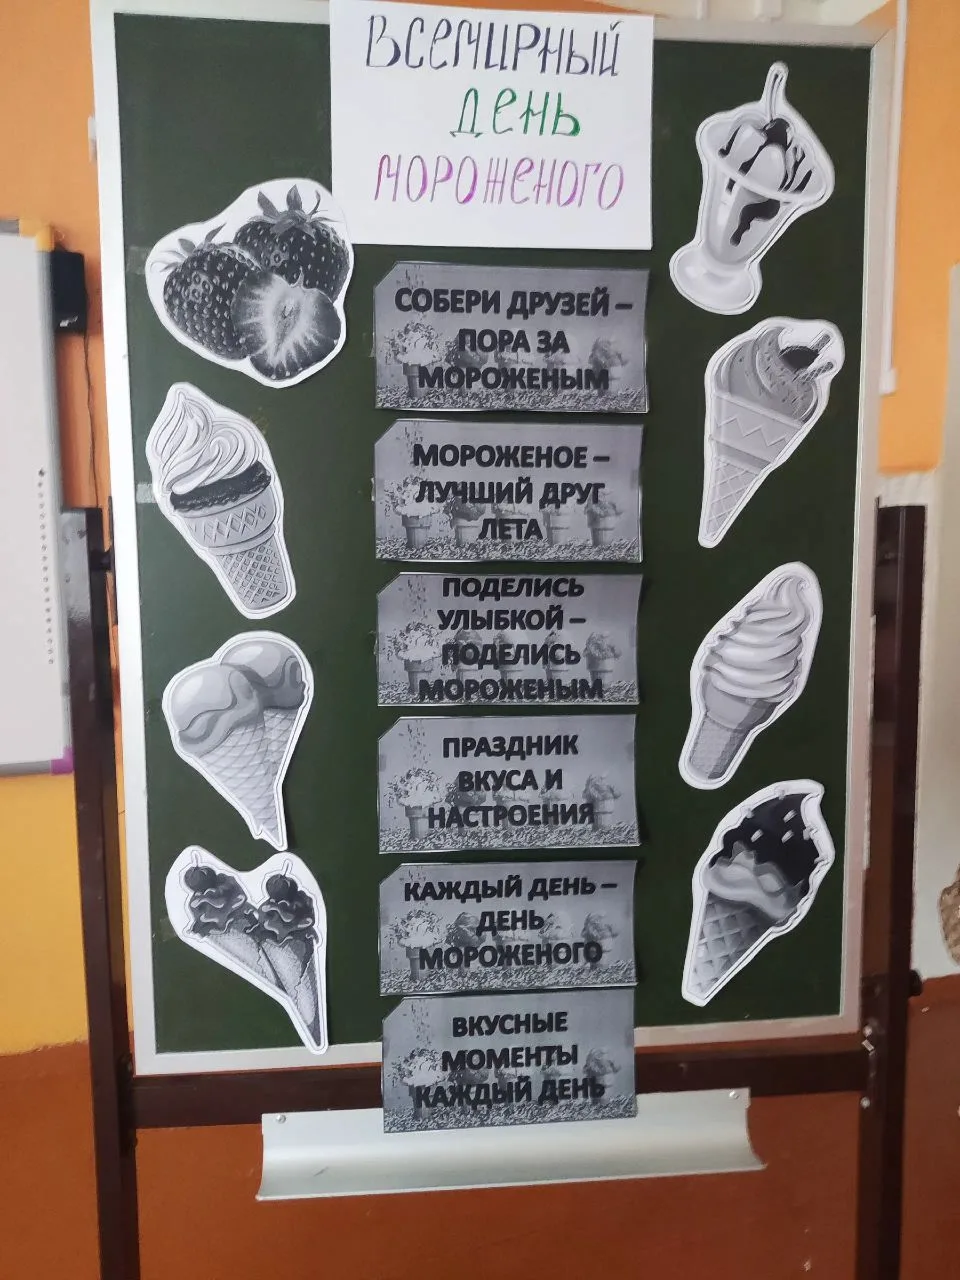 ВСЕМИРНЫЙ
ДЕНЬ
МОРОЖЕНОГО
СОБЕРИ ДРУЗЕЙ –
ПОРА ЗА
МОРОЖЕНЫМ
МОРОЖЕНОЕ –
ЛУЧШИЙ ДРУГ
ЛЕТА
ПОДЕЛИСЬ
УЛЫБКОЙ –
ПОДЕЛИСЬ
МОРОЖЕНЫМ
ПРАЗДНИК
ВКУСА И
НАСТРОЕНИЯ
КАЖДЫЙ ДЕНЬ –
ДЕНЬ
МОРОЖЕНОГО
ВКУСНЫЕ
МОМЕНТЫ
КАЖДЫЙ ДЕНЬ